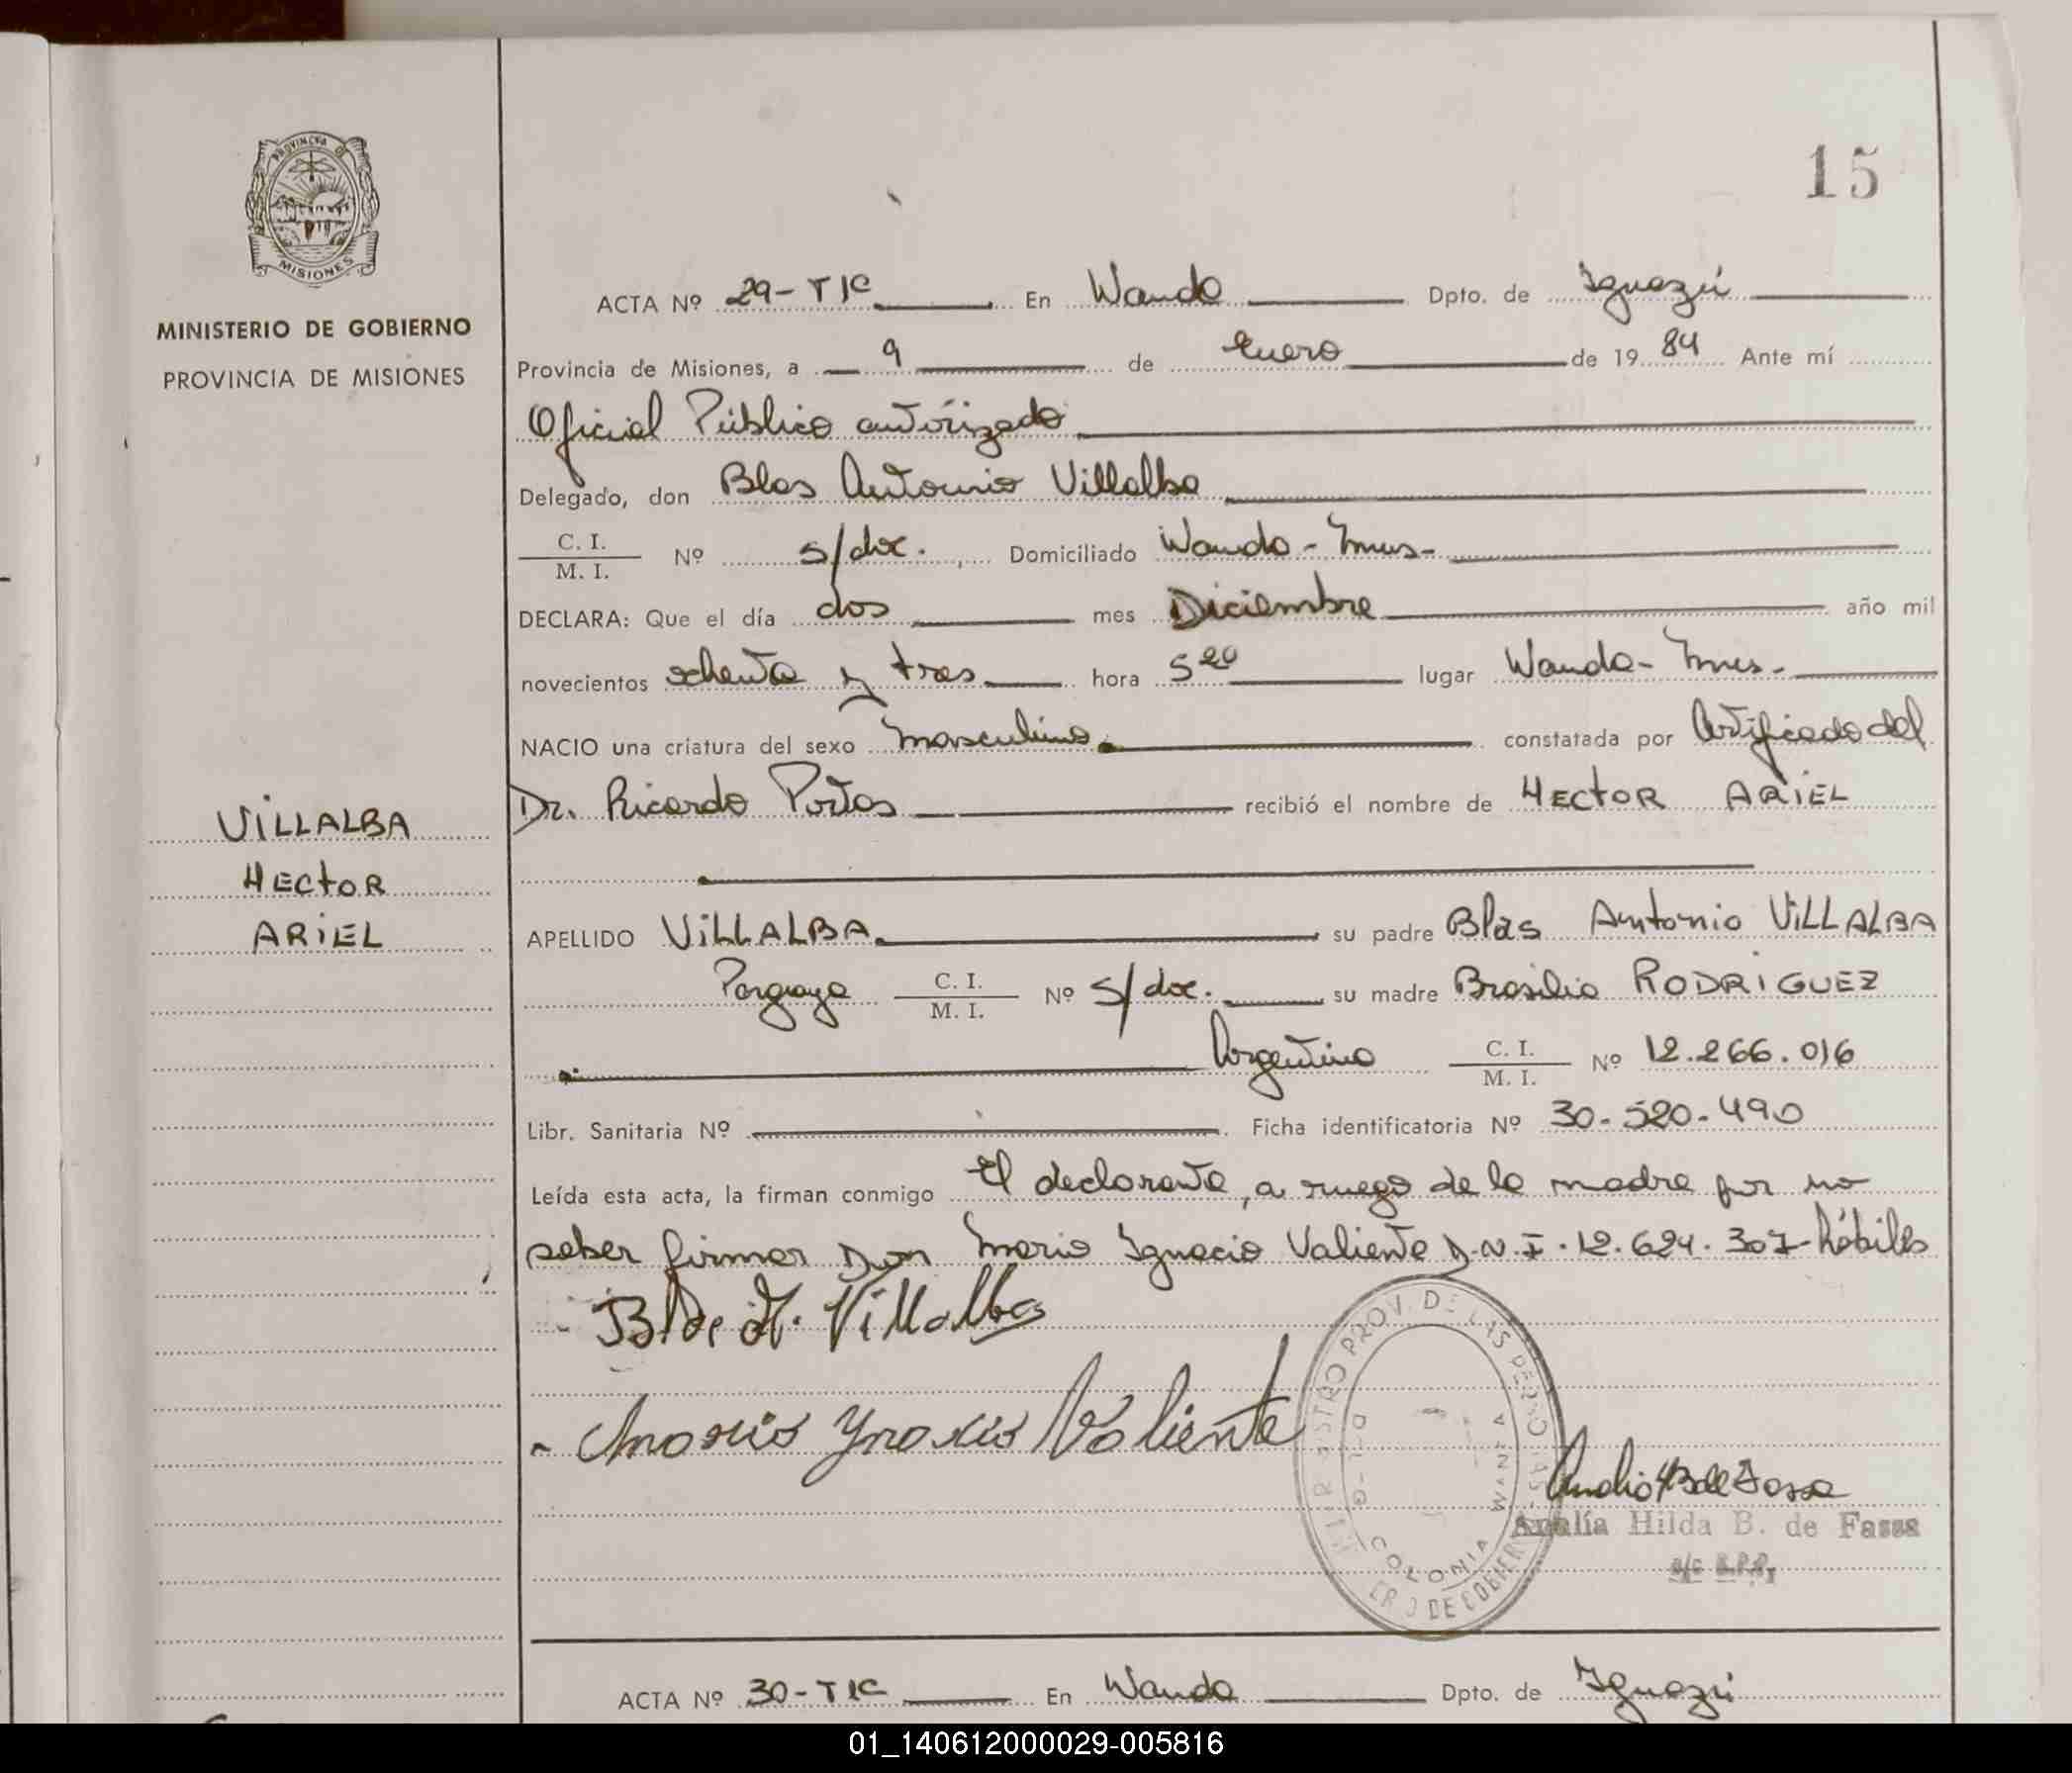 PROVINCIA DE
MISIONES
MINISTERIO DE GOBIERNO
PROVINCIA DE MISIONES
VILLALBA
HECTOR
ARIEL
15
ACTA Nº 29-T1C En Wanda Dpto. de Iguazú
Provincia de Misiones, a 9 de Enero de 1984 Ante mí
Oficial Público autorizado
Delegado, don Blas Antonio Villalba
C. I.
M. I. Nº s/doc. Domiciliado Wanda - Mnes-
DECLARA: Que el día dos mes Diciembre año mil
novecientos ochenta y tres hora 5 20 lugar Wanda - Mnes-
NACIO una criatura del sexo masculino constatada por Certificado del
Dr. Ricardo Portas recibió el nombre de HECTOR ARIEL
APELLIDO VILLALBA su padre Blas Antonio VILLALBA
Paraguaya C. I.
M. I. Nº s/doc. su madre Brasilia RODRIGUEZ
Argentina C. I.
M. I. Nº 12.266.016
Libr. Sanitaria Nº Ficha identificatoria Nº 30-520-490
Leída esta acta, la firman conmigo El declarante, a ruego de la madre por no
saber firmar Don Mario Ignacio Valiente D.N.I. 12.624.307-hábiles
Blas A. Villalba
Mario Ynacio Valiente
REGISTRO PROV. DE LAS PERSONAS
COLONIA WANDA
MINISTERIO DE GOBIERNO
Analía Hilda B. de Fassa
a/c R.P.P.
ACTA Nº 30-T1C En Wanda Dpto. de Iguazú
01_140612000029-005816